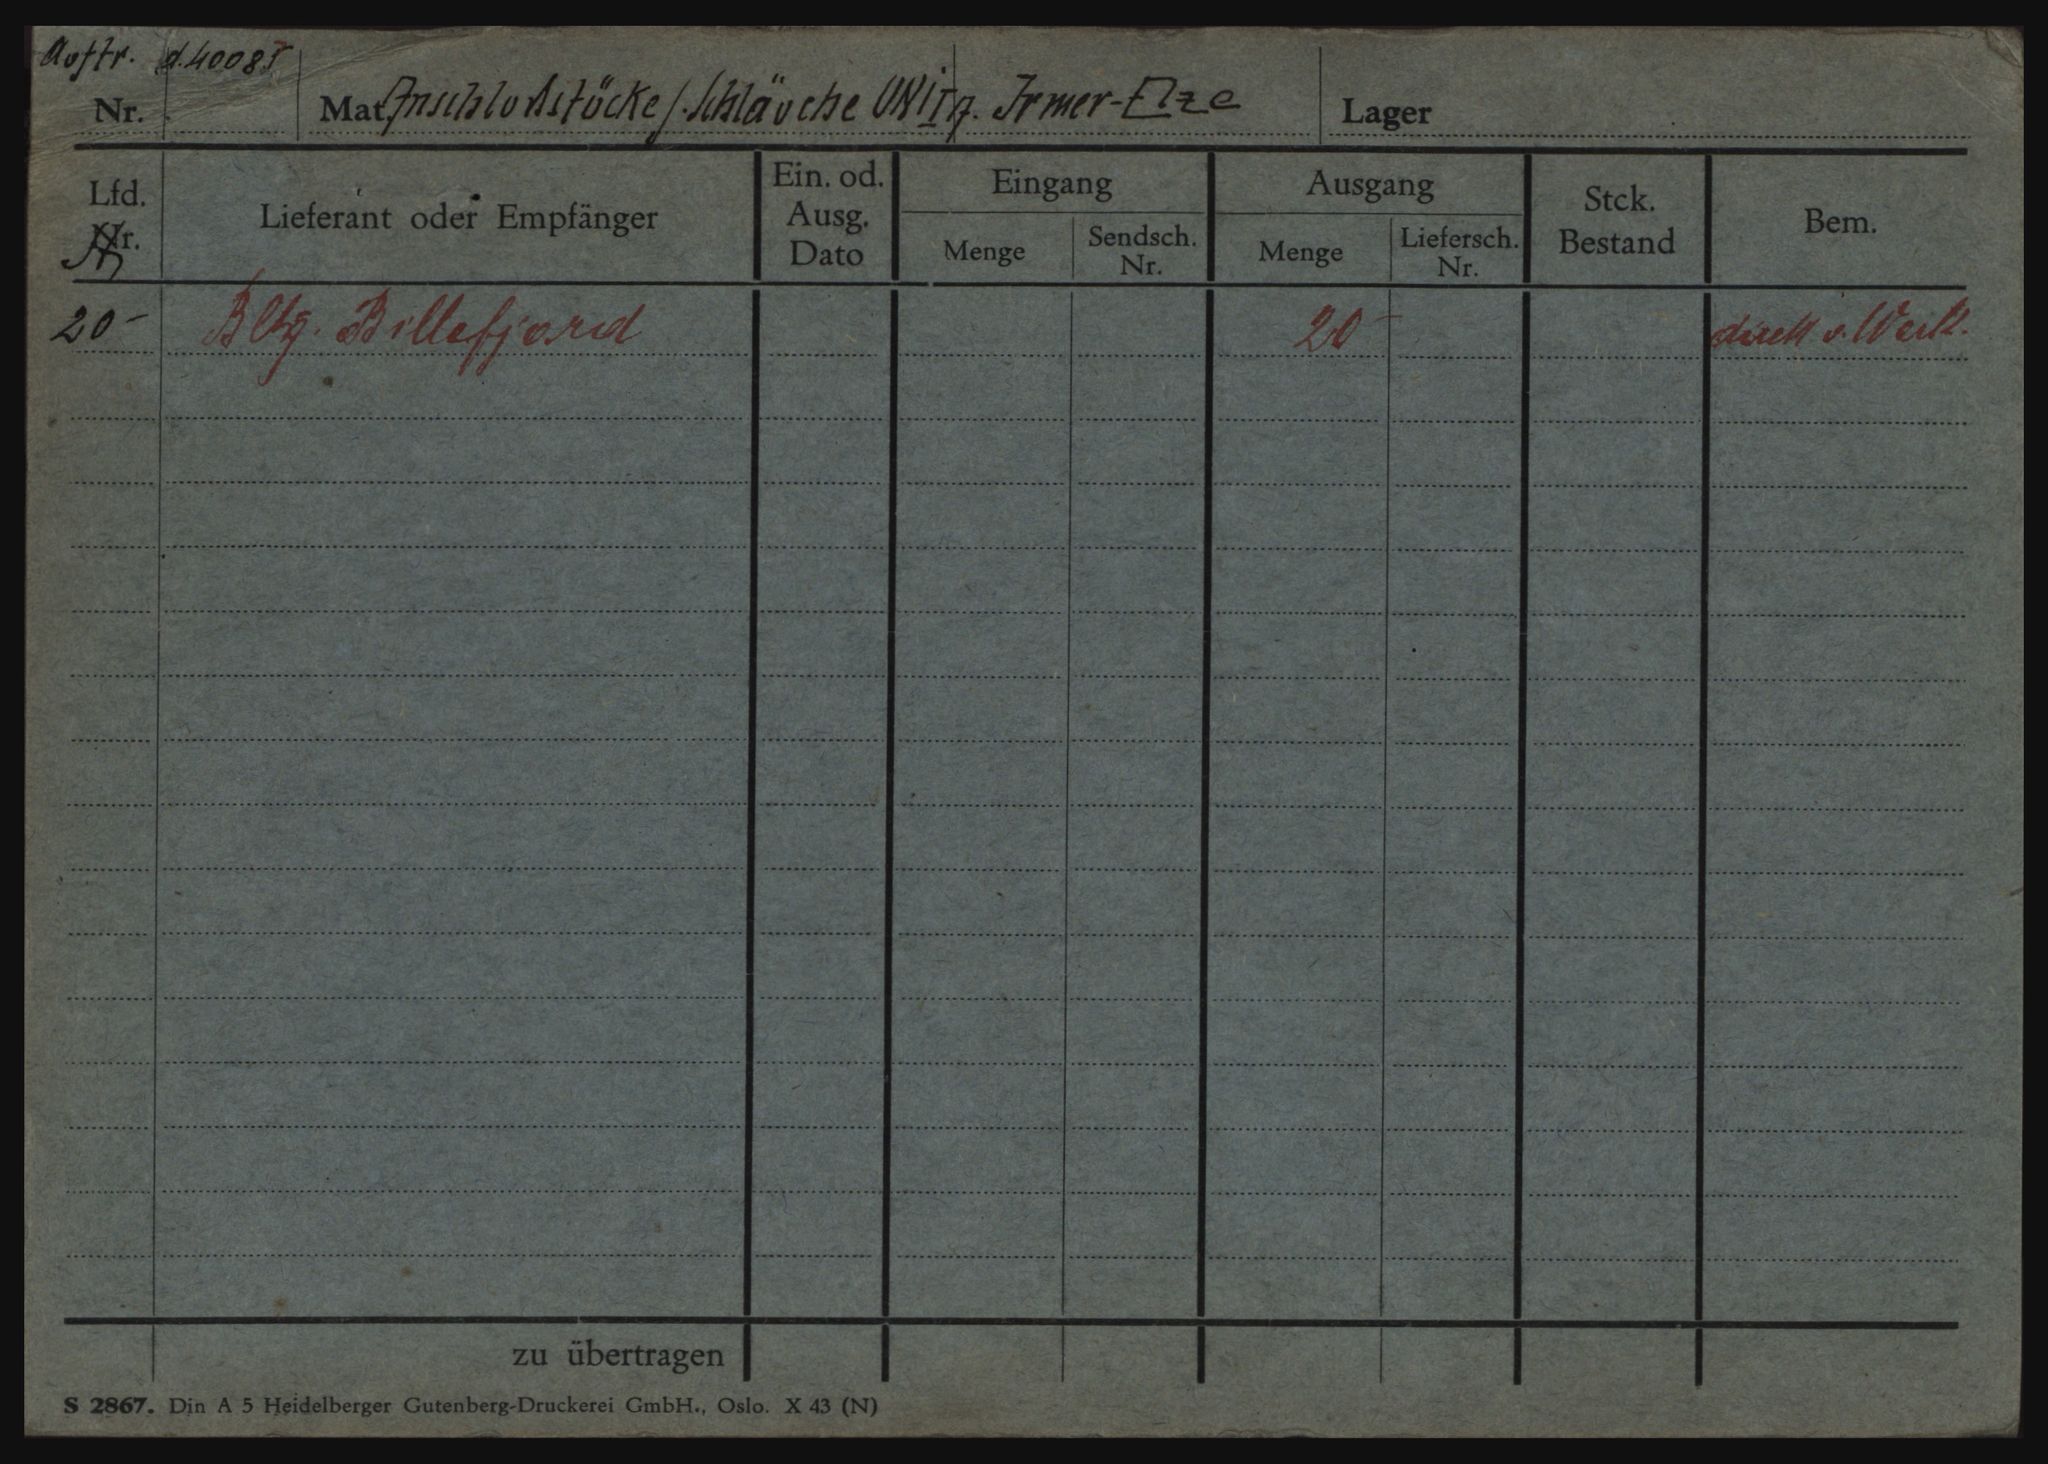 Auftr. d. 40085
Nr. Mat. Anschlußstücke f. Schläuche UNI I f. Irmer-Elze Lager
Lfd. Nr. Lieferant oder Empfänger Ein. od. Ausg. Dato Eingang Menge Sendsch. Nr. Ausgang Menge Liefersch. Nr. Stck. Bestand Bem.
20 - Bltg. Billefjord 20 - direkt v. Werk.
zu übertragen
S 2867. Din A 5 Heidelberger Gutenberg-Druckerei GmbH., Oslo. X 43 (N)